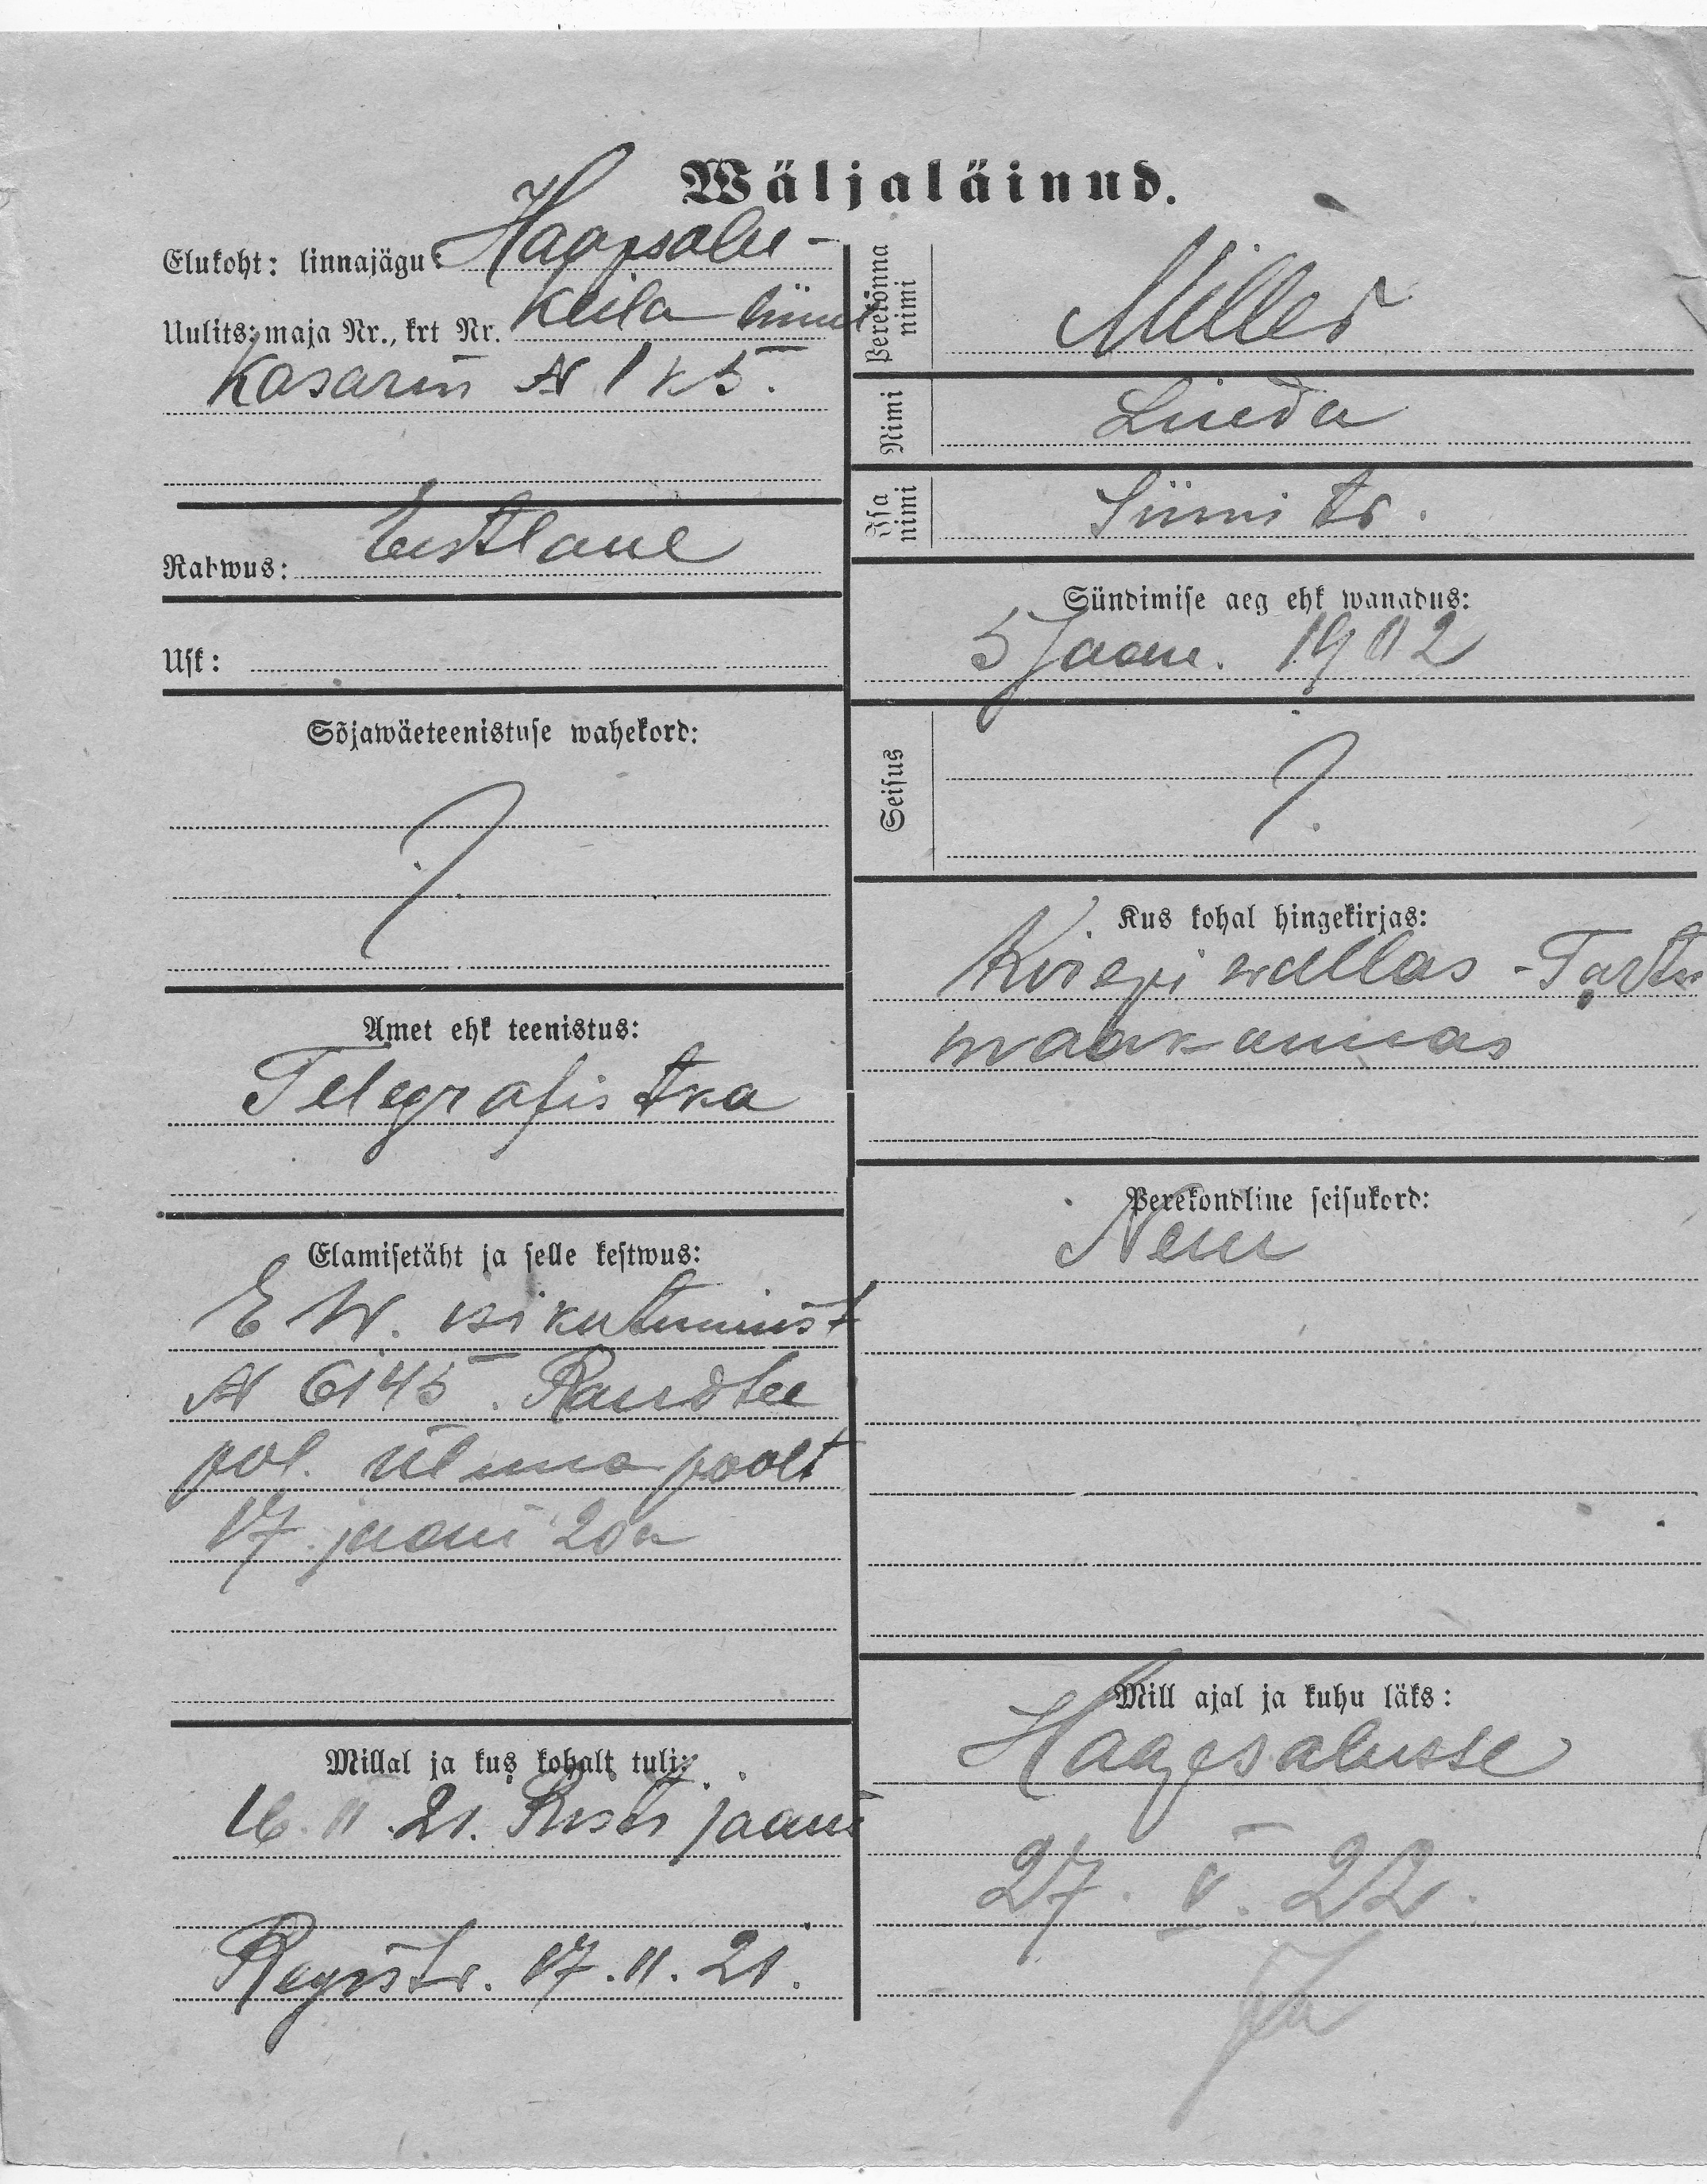 Wäljaläinud.
Elukoht: linnajägu: Haapsalu-
Uulits: maja Nr., krt Nr. Keila liini
Kasarm № 1 k 5.
Rahwus: Eestlane
Usk:
Sõjawäeteenistuse wahekord:
?
Amet ehk teenistus:
Telegrafistka
Elamisetäht ja selle kestwus:
E W. isikutunnist
№ 6145. Raudtee
pol. ülema poolt
17. juuni 20 a
Millal ja kus kohalt tuli:
16.II.21. Risti jaam
Registr. 17.II.21.
Perekonna nimi Miller
Nimi Linda
Isa nimi Siimi tr.
Sündimise aeg ehk wanadus:
5 Jaan. 1902
Seisus ?
Kus kohal hingekirjas:
Kirepi wallas - Tartu
maakonnas
Perekondline seisukord:
Neiu
Mill ajal ja kuhu läks:
Haapsalusse
27. V. 22.